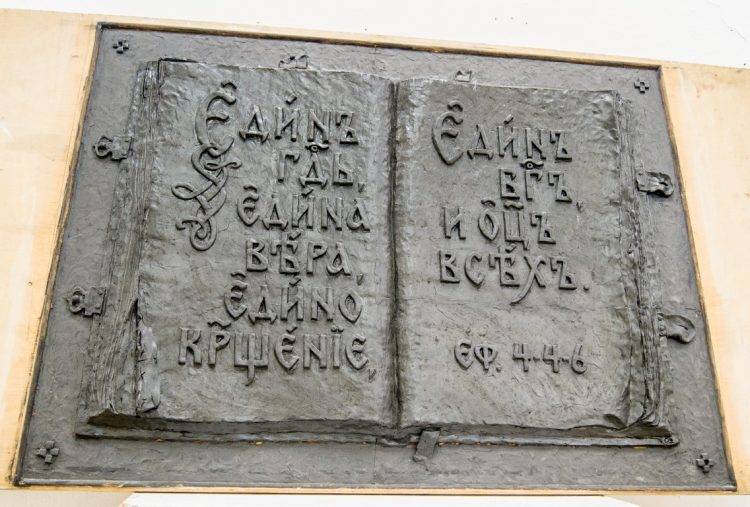 Є҆ди́нъ
гдⷭ҇ь,
є҆ди́на
вѣ́ра,
є҆ди́но
кр҃щє́нїє,
Є҆ди́нъ
бг҃ъ,
и ѻ҆ц҃ъ
всѣ́хъ.
єф. 4-4-6